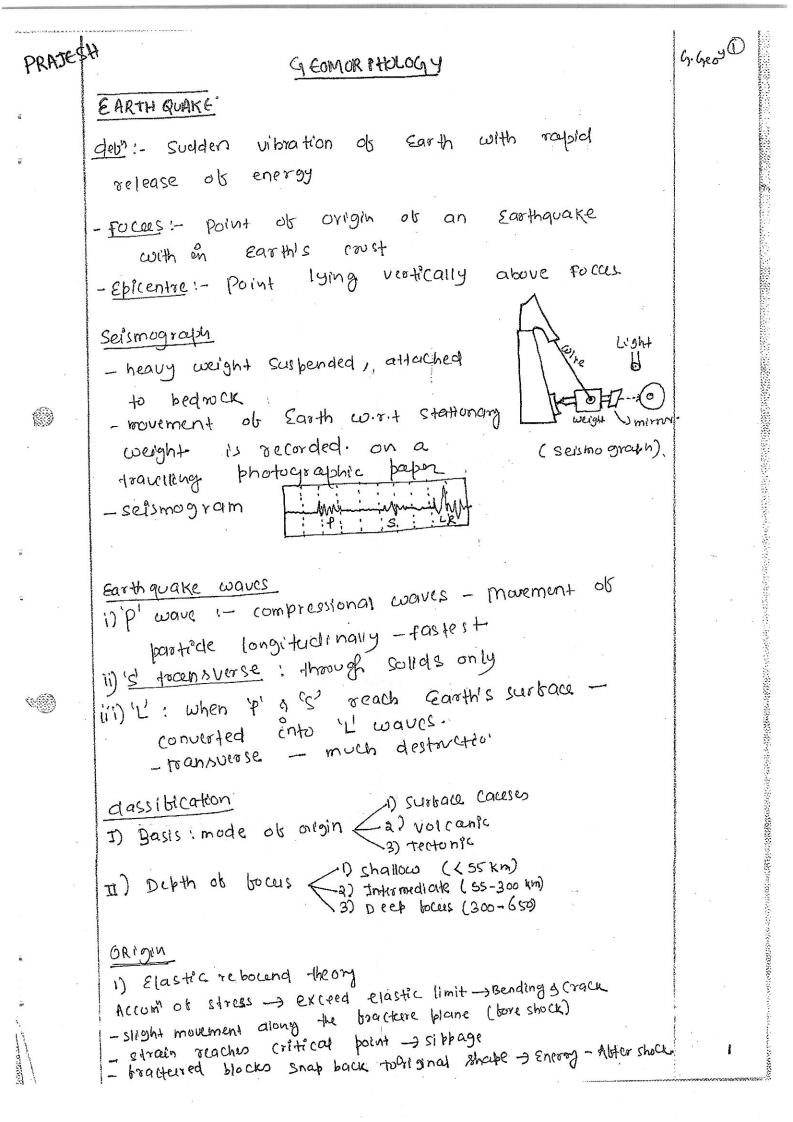 PRAJESH
GEOMORPHOLOGY
G.Geo 1
EARTH QUAKE
defn :- Sudden vibration of Earth with rapid
release of energy
- Focus :- Point of origin of an Earthquake
with in Earth's crust
- Epicentre :- Point lying vertically above focus
Seismograph
- heavy weight suspended, attached
to bedrock
- movement of Earth w.r.t stationary
weight is recorded on a
travelling photographic paper
- seismogram
wire
Light
weight
mirror
(seismograph).
P S. LR
Earthquake waves
i) 'P' wave :- compressional waves - Movement of
particle longitudinally - fastest
ii) 'S' transverse : through solids only
iii) 'L' : when 'P' & 'S' reach Earth's surface -
converted into 'L' waves.
- transverse - much destructio
classification
I) Basis : mode of origin
1) surface causes
2) volcanic
3) tectonic
II) Depth of focus
1) shallow (<55 km)
2) Intermediate (55-300 km)
3) Deep focus (300-650)
ORigin
1) Elastic rebound theory
Accumn of stress → exceed elastic limit → Bending & Crack
- slight movement along the fracture plane (fore shock)
- strain reaches critical point → slippage
- fractured blocks snap back to original shape → Energy - After shock
1